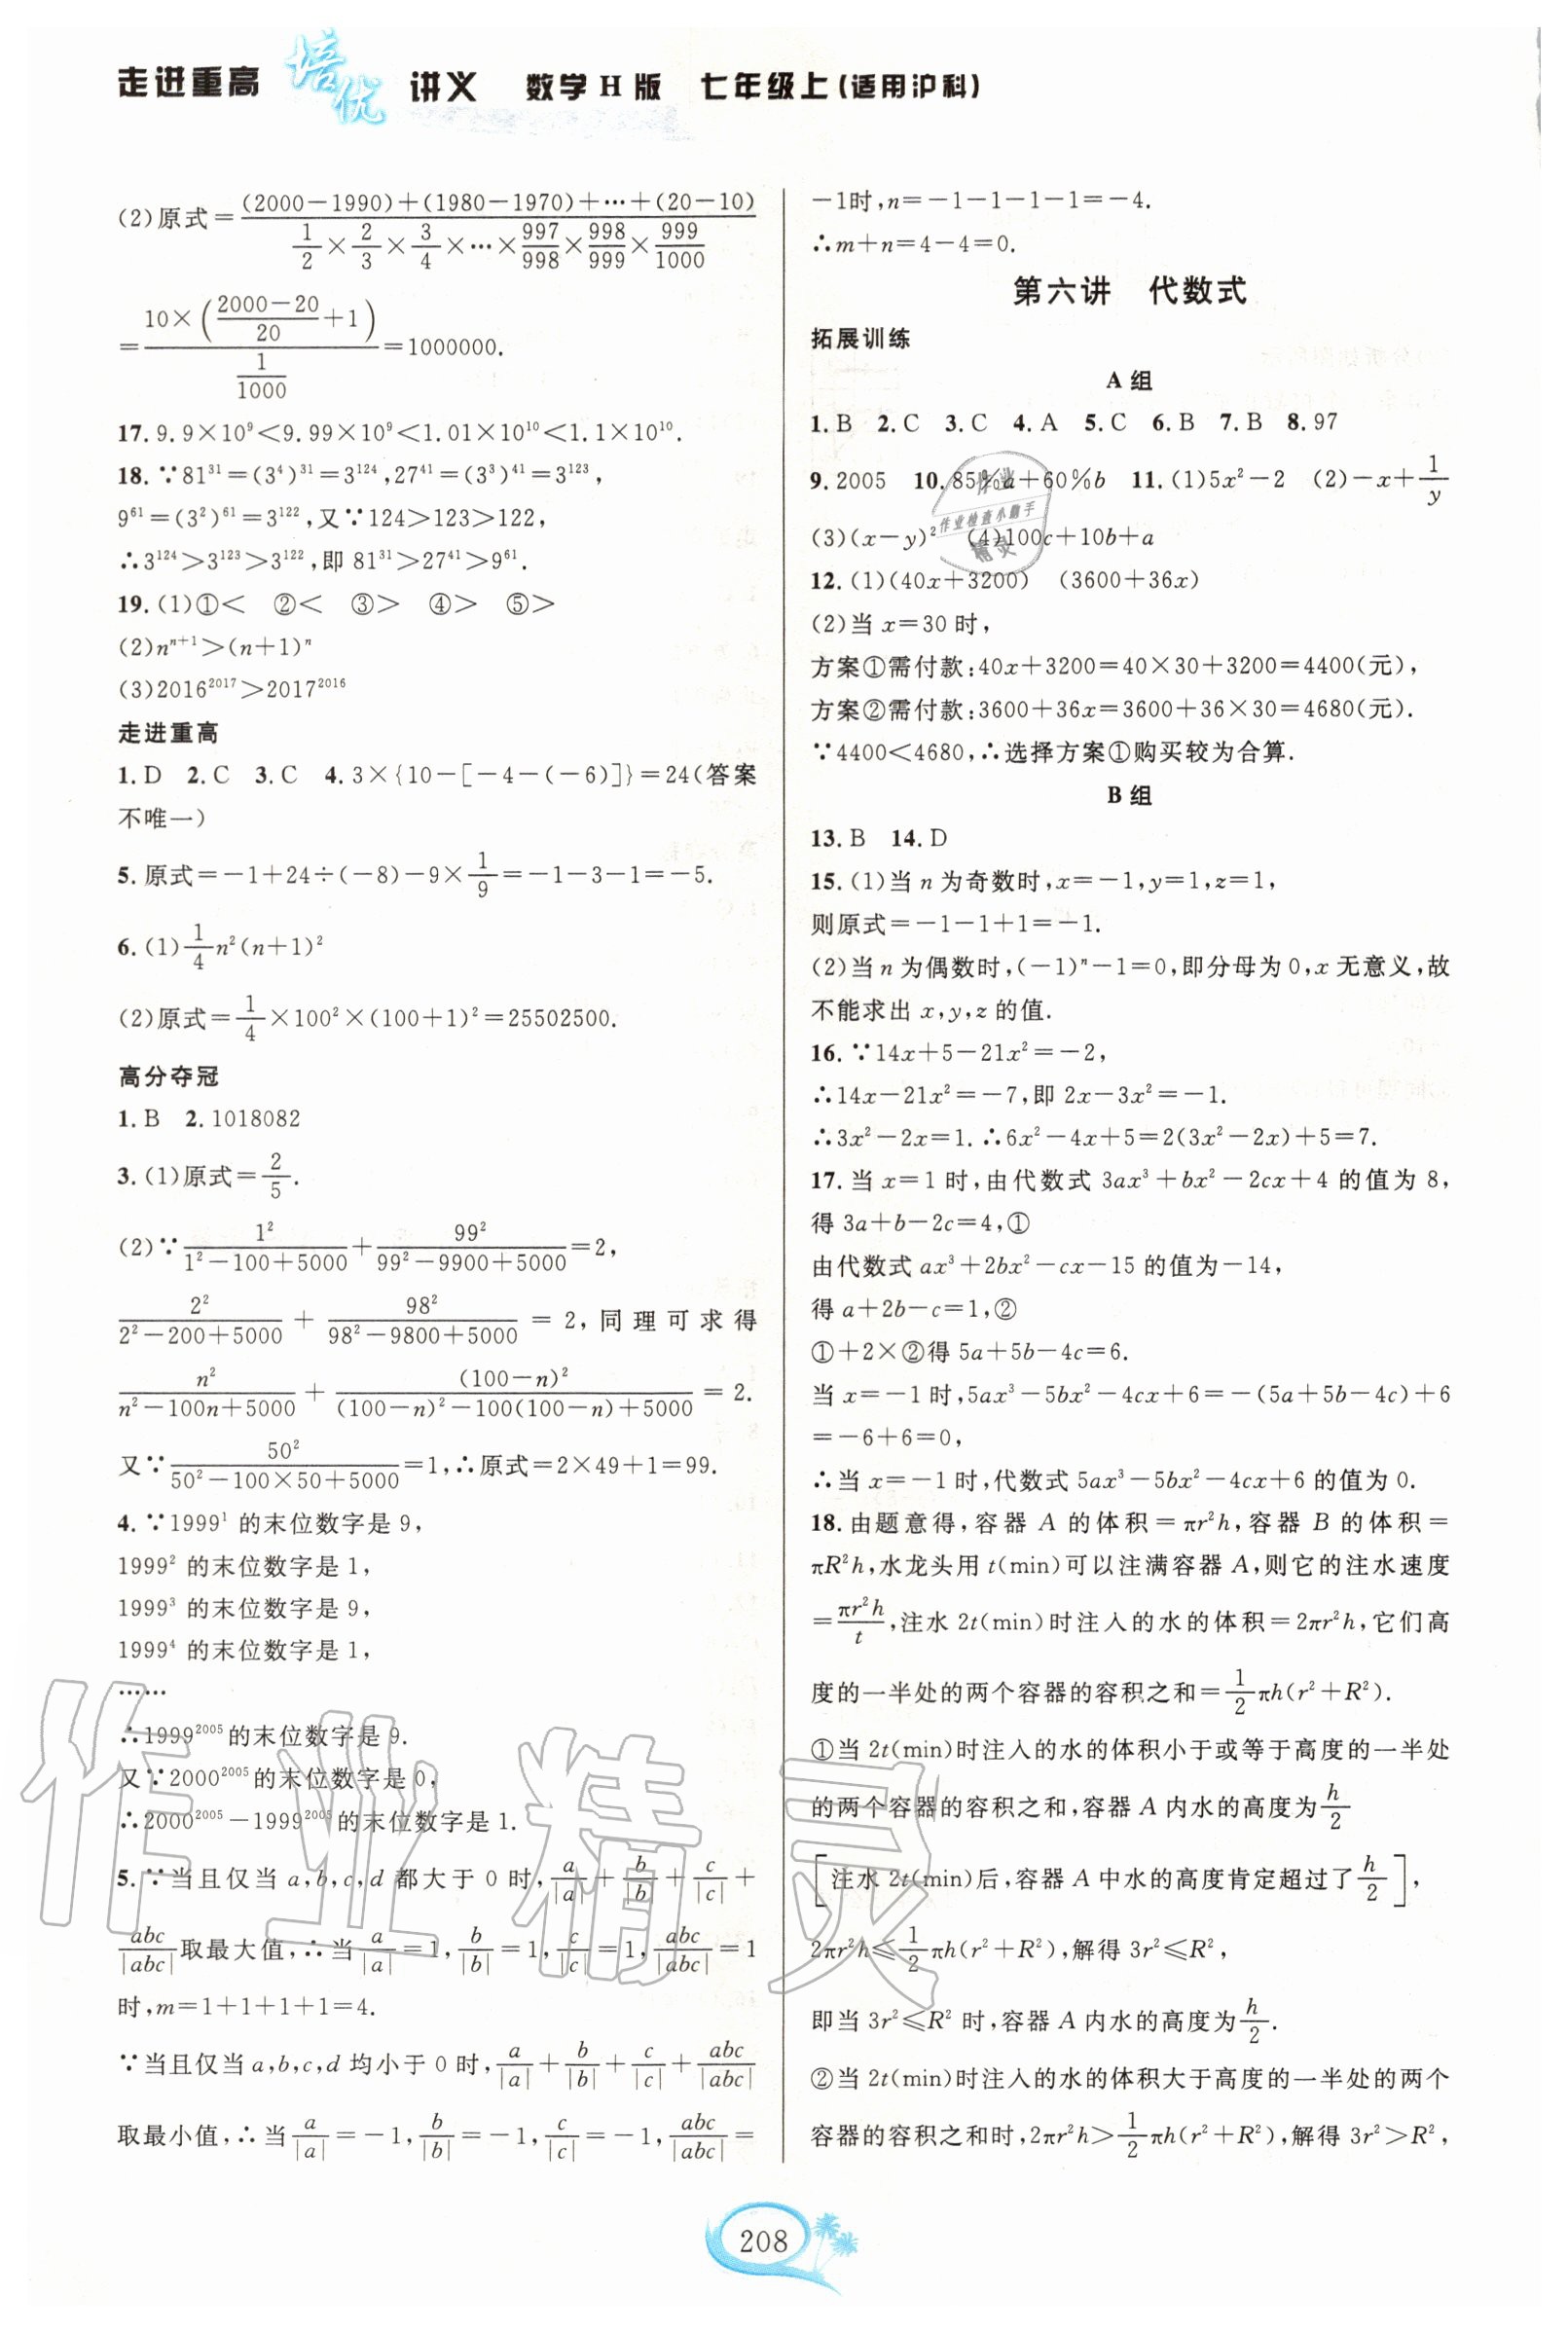 走进重高 培优 讲义 数学 H 版 七年级上(适用沪科)
(2)原式=\frac{(2000-1990)+(1980-1970)+…+(20-10)}{\frac{1}{2}×\frac{2}{3}×\frac{3}{4}×…×\frac{997}{998}×\frac{998}{999}×\frac{999}{1000}}
=\frac{10×(\frac{2000-20}{20}+1)}{\frac{1}{1000}}=1000000.
17. 9.9×10⁹<9.99×10⁹<1.01×10¹⁰<1.1×10¹⁰.
18. ∵81³¹=(3⁴)³¹=3¹²⁴,27⁴¹=(3³)⁴¹=3¹²³,
9⁶¹=(3²)⁶¹=3¹²²,又∵124>123>122,
∴3¹²⁴>3¹²³>3¹²²,即 81³¹>27⁴¹>9⁶¹.
19. (1)①< ②< ③> ④> ⑤>
(2)nⁿ⁺¹>(n+1)ⁿ
(3)2016²⁰¹⁷>2017²⁰¹⁶
走进重高
1. D 2. C 3. C 4. 3×{10-[-4-(-6)]}=24(答案
不唯一)
5. 原式=-1+24÷(-8)-9×\frac{1}{9}=-1-3-1=-5.
6. (1)\frac{1}{4}n²(n+1)²
(2)原式=\frac{1}{4}×100²×(100+1)²=25502500.
高分夺冠
1. B 2. 1018082
3. (1)原式=\frac{2}{5}.
(2)∵\frac{1²}{1²-100+5000}+\frac{99²}{99²-9900+5000}=2,
\frac{2²}{2²-200+5000}+\frac{98²}{98²-9800+5000}=2,同理可求得
\frac{n²}{n²-100n+5000}+\frac{(100-n)²}{(100-n)²-100(100-n)+5000}=2.
又∵\frac{50²}{50²-100×50+5000}=1,∴原式=2×49+1=99.
4. ∵1999¹ 的末位数字是 9,
1999² 的末位数字是 1,
1999³ 的末位数字是 9,
1999⁴ 的末位数字是 1,
……
∴1999²⁰⁰⁵的末位数字是 9.
又∵2000²⁰⁰⁵的末位数字是 0,
∴2000²⁰⁰⁵-1999²⁰⁰⁵的末位数字是 1.
5. ∵当且仅当 a,b,c,d 都大于 0 时,\frac{a}{|a|}+\frac{b}{|b|}+\frac{c}{|c|}+
\frac{abc}{|abc|}取最大值,∴当\frac{a}{|a|}=1,\frac{b}{|b|}=1,\frac{c}{|c|}=1,\frac{abc}{|abc|}=1
时,m=1+1+1+1=4.
∵当且仅当 a,b,c,d 均小于 0 时,\frac{a}{|a|}+\frac{b}{|b|}+\frac{c}{|c|}+\frac{abc}{|abc|}
取最小值,∴当\frac{a}{|a|}=-1,\frac{b}{|b|}=-1,\frac{c}{|c|}=-1,\frac{abc}{|abc|}=
-1时,n=-1-1-1-1=-4.
∴m+n=4-4=0.
第六讲 代数式
拓展训练
A 组
1. B 2. C 3. C 4. A 5. C 6. B 7. B 8. 97
9. 2005 10. 85%a+60%b 11. (1)5x²-2 (2)-x+\frac{1}{y}
(3)(x-y)² (4)100c+10b+a
12. (1)(40x+3200) (3600+36x)
(2)当 x=30 时,
方案①需付款:40x+3200=40×30+3200=4400(元),
方案②需付款:3600+36x=3600+36×30=4680(元).
∵4400<4680,∴选择方案①购买较为合算.
B 组
13. B 14. D
15. (1)当 n 为奇数时,x=-1,y=1,z=1,
则原式=-1-1+1=-1.
(2)当 n 为偶数时,(-1)ⁿ-1=0,即分母为 0,x 无意义,故
不能求出 x,y,z 的值.
16. ∵14x+5-21x²=-2,
∴14x-21x²=-7,即 2x-3x²=-1.
∴3x²-2x=1. ∴6x²-4x+5=2(3x²-2x)+5=7.
17. 当 x=1 时,由代数式 3ax³+bx²-2cx+4 的值为 8,
得 3a+b-2c=4,①
由代数式 ax³+2bx²-cx-15 的值为-14,
得 a+2b-c=1,②
①+2×②得 5a+5b-4c=6.
当 x=-1 时,5ax³-5bx²-4cx+6=-(5a+5b-4c)+6
=-6+6=0,
∴当 x=-1 时,代数式 5ax³-5bx²-4cx+6 的值为 0.
18. 由题意得,容器 A 的体积=πr²h,容器 B 的体积=
πR²h,水龙头用 t(min)可以注满容器 A,则它的注水速度
=\frac{πr²h}{t},注水 2t(min)时注入的水的体积=2πr²h,它们高
度的一半处的两个容器的容积之和=\frac{1}{2}πh(r²+R²).
①当 2t(min)时注入的水的体积小于或等于高度的一半处
的两个容器的容积之和,容器 A 内水的高度为\frac{h}{2}
[注水 2t(min)后,容器 A 中水的高度肯定超过了\frac{h}{2}],
2πr²h≤\frac{1}{2}πh(r²+R²),解得 3r²≤R²,
即当 3r²≤R² 时,容器 A 内水的高度为\frac{h}{2}.
②当 2t(min)时注入的水的体积大于高度的一半处的两个
容器的容积之和时,2πr²h>\frac{1}{2}πh(r²+R²),解得 3r²>R²,
作业
作业检查小助手
精灵
作业精灵
208